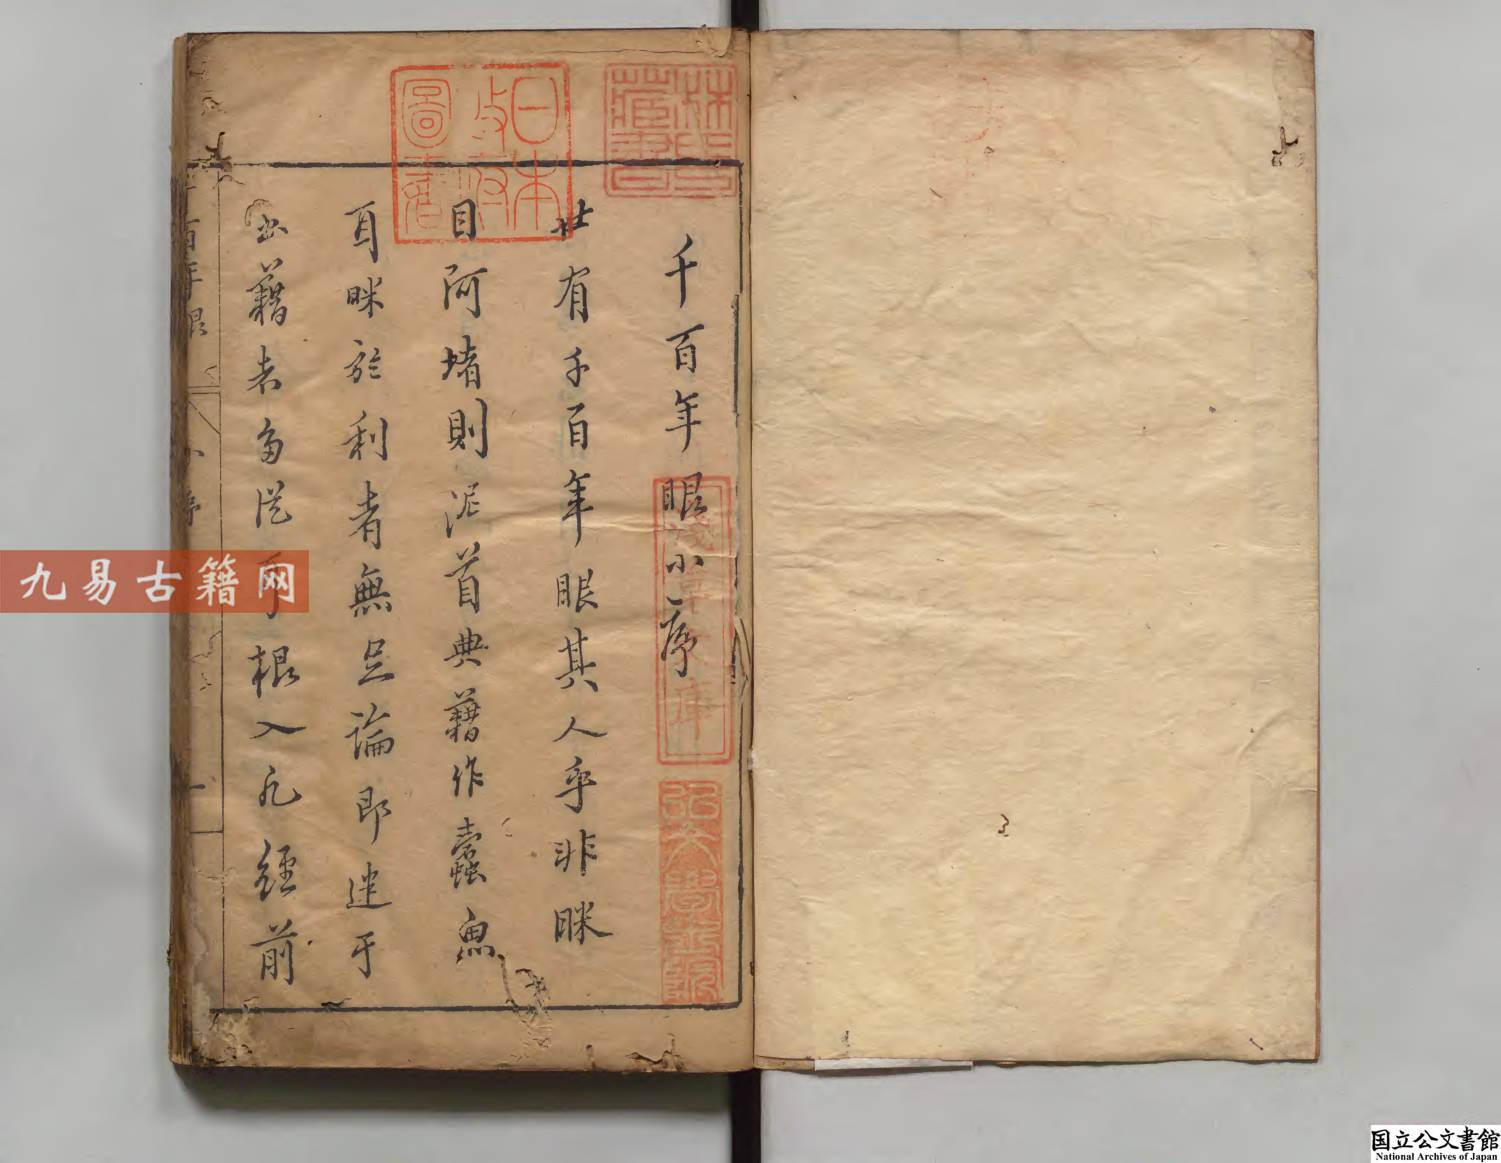 林氏藏書
日本政府圖書
千百年眼小序
淺草文庫
弘文學士院
世有千百年眼其人乎非眯
目阿堵則泥首典藉作蠹魚
耳眯於利者無足論即迷于
書藉者多從耳根入凡經前
百年眼
小序
一
九易古籍网
国立公文書館
National Archives of Japan